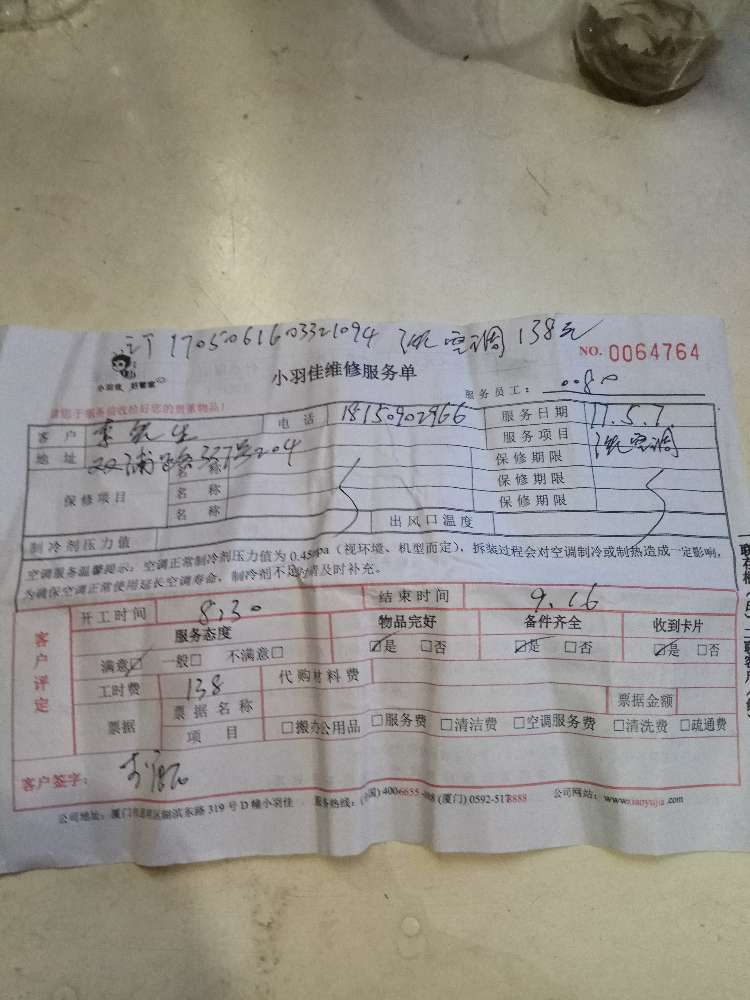 订 1705061603321094 洗空调 138元
NO. 0064764
小羽佳 好管家
小羽佳维修服务单
服务员工: 0080
请您于服务前收检好您的贵重物品!
客户 李先生 电话 18150902966 服务日期 17.5.7
地址 双浦路337号204 服务项目 洗空调
保修项目 名称 保修期限
名称 保修期限
名称 保修期限
制冷剂压力值 出风口温度
空调服务温馨提示: 空调正常制冷剂压力值为 0.45mpa (视环境、机型而定), 拆装过程会对空调制冷或制热造成一定影响,
为确保空调正常使用延长空调寿命, 制冷剂不足时请及时补充。
客户评定
开工时间 8:30 结束时间 9.16
服务态度 物品完好 备件齐全 收到卡片
满意☑ 一般□ 不满意□ ☑是 □否 ☑是 □否 ☑是 □否
工时费 138 代购材料费
票据 票据名称 票据金额
项目 □搬办公用品 □服务费 □清洁费 □空调服务费 □清洗费 □疏通费
客户签字:
公司地址: 厦门市思明区湖滨东路 319 号 D 幢小羽佳 服务热线: (全国) 4006655-888 (厦门) 0592-517888 公司网站: www.xiaoyujia.com